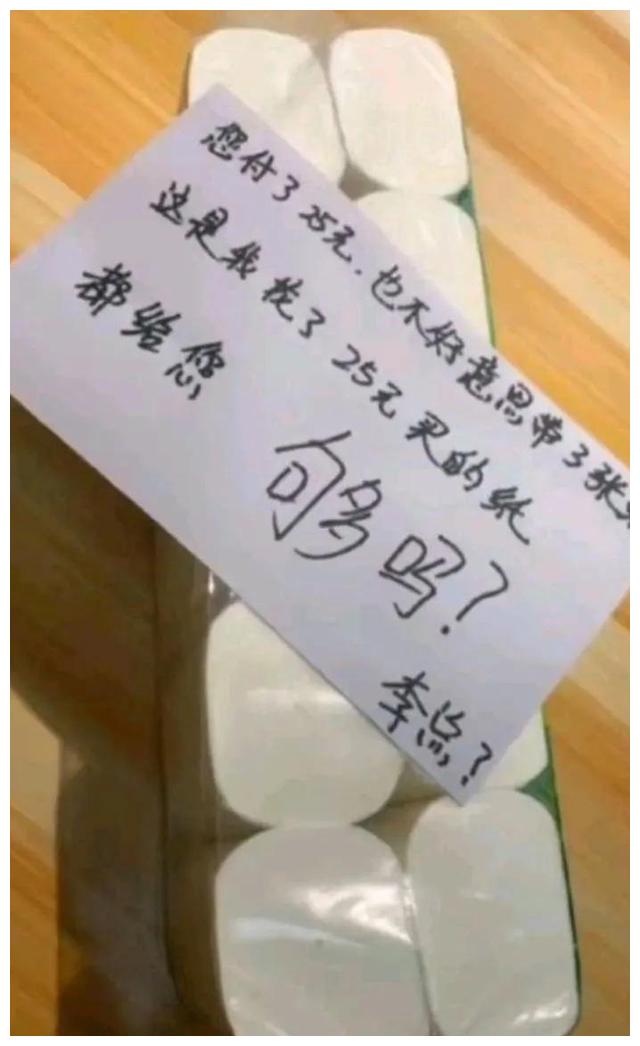 您付了25元.也不好意思带3张
这是我找了25元买的纸
都给您
够吗?
李总?